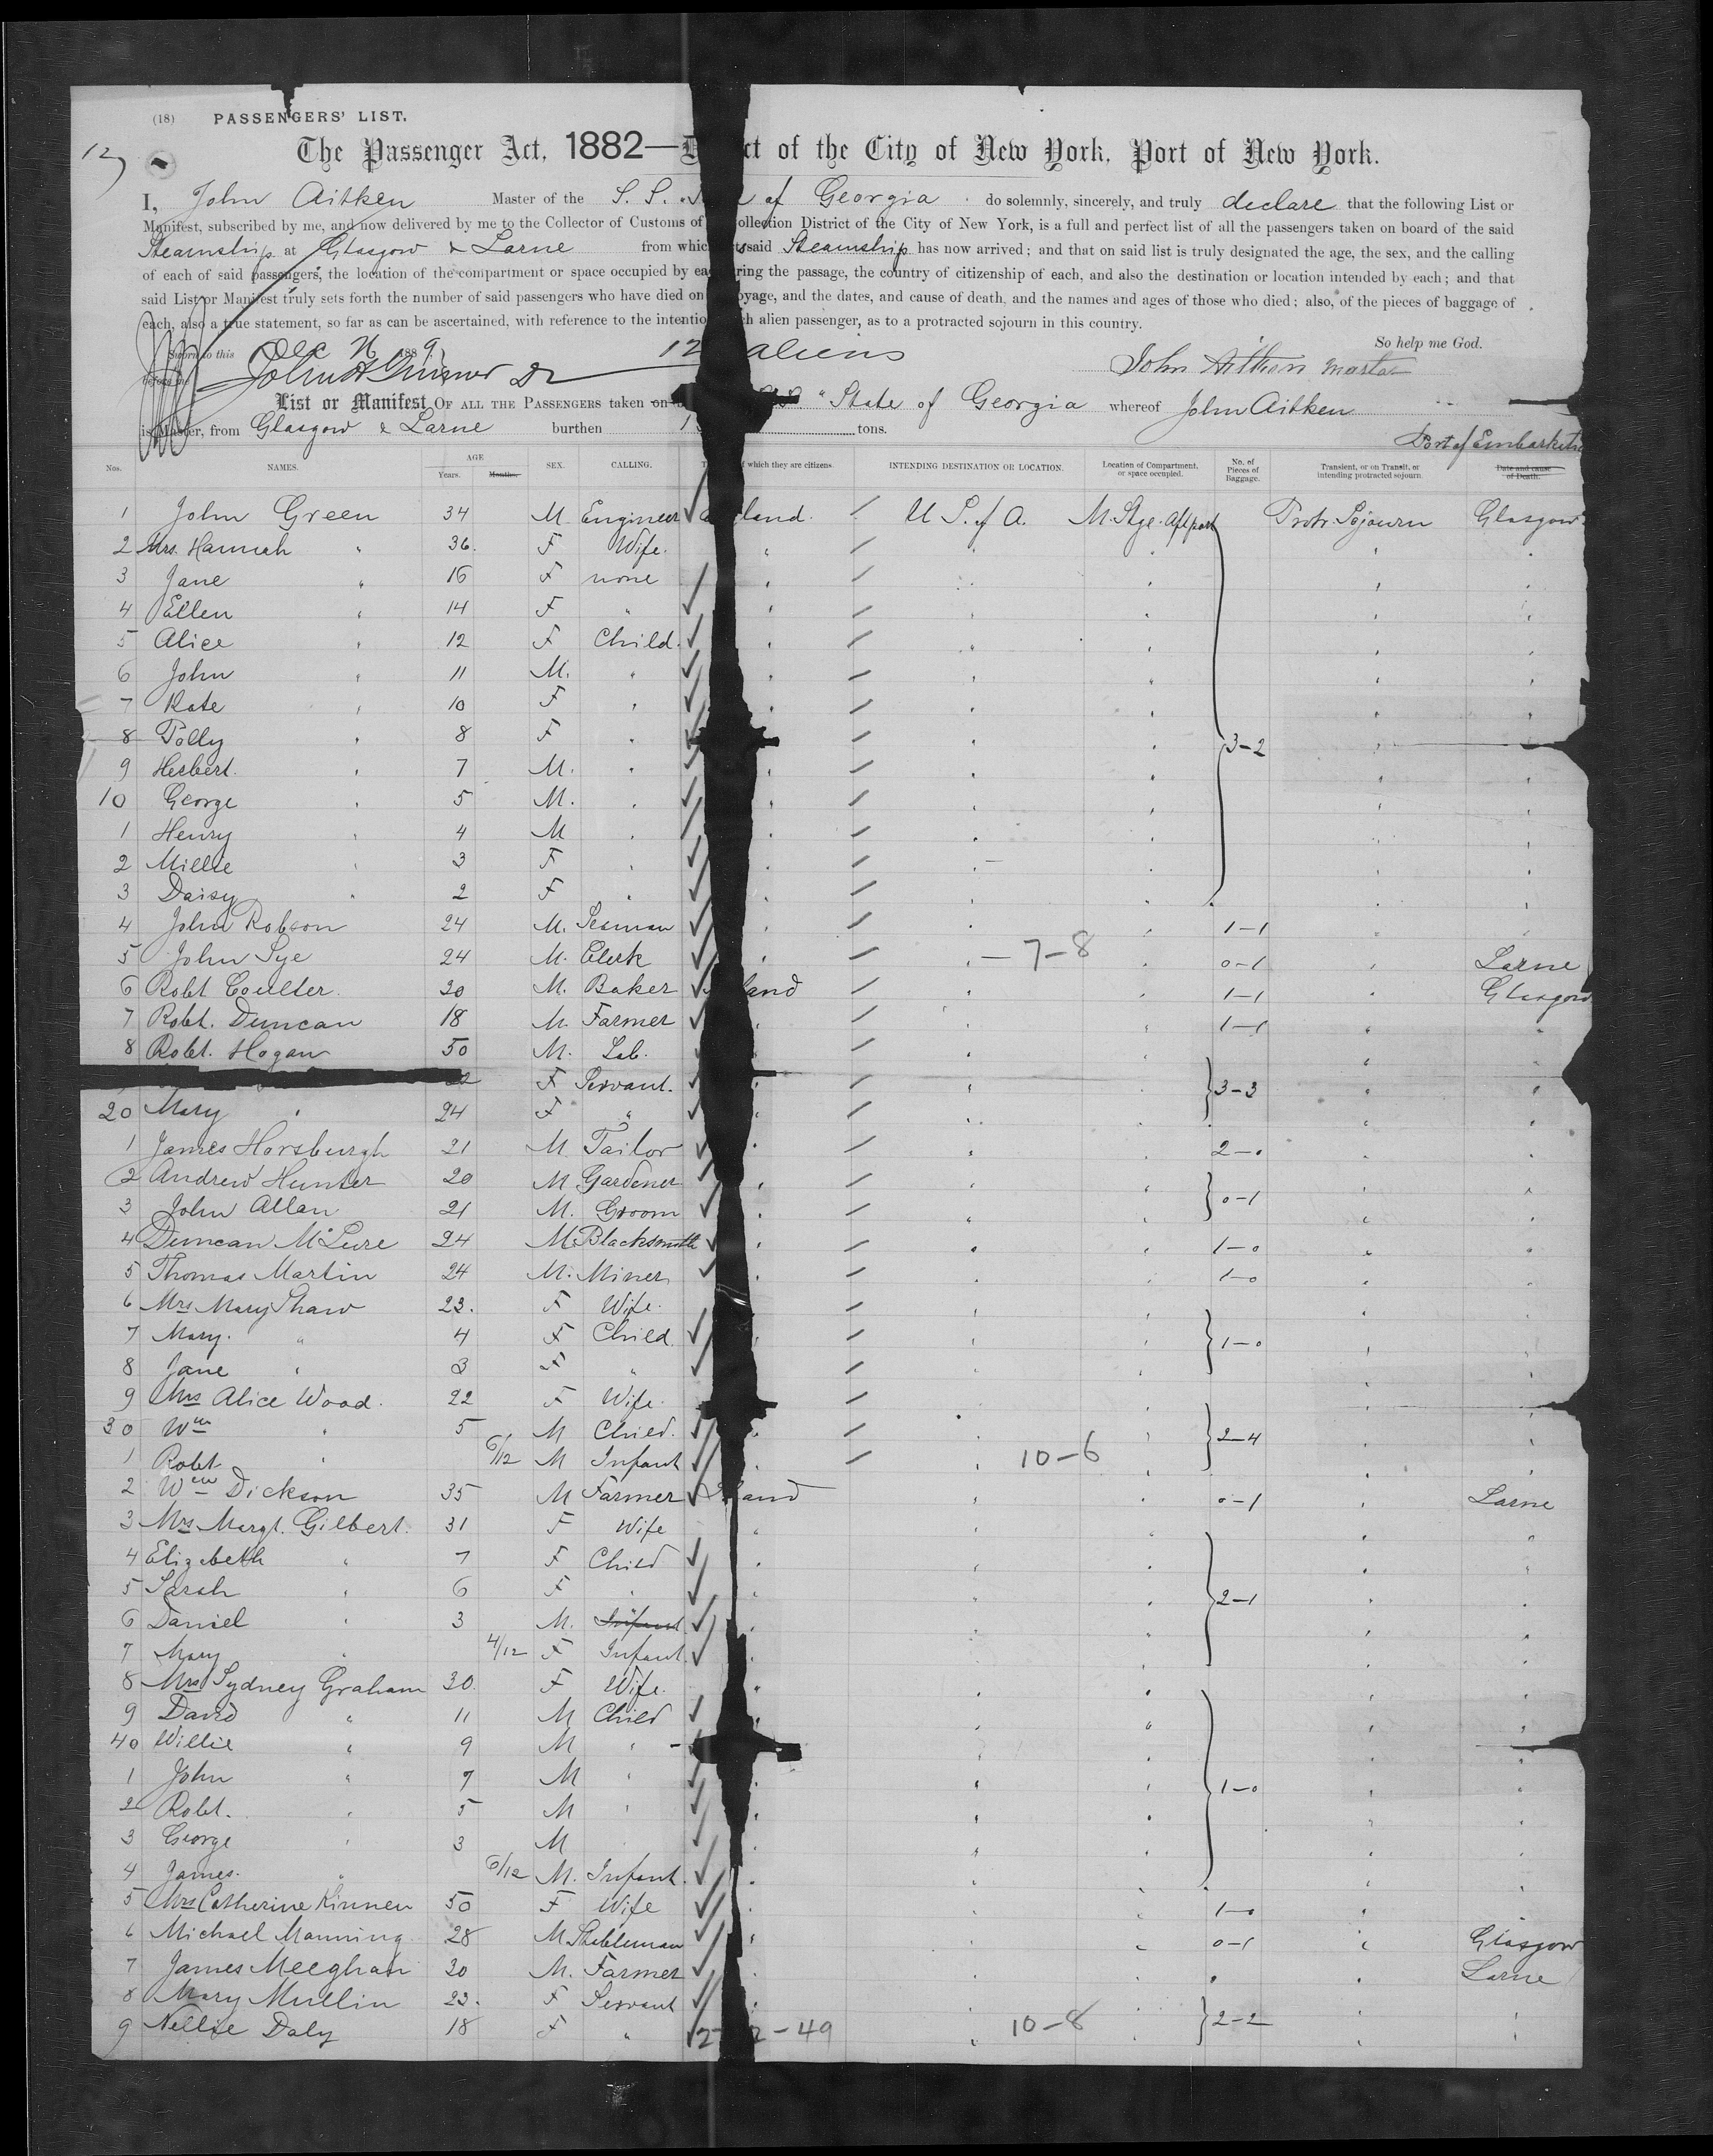 (18) PASSENGERS' LIST.
12
The Passenger Act, 1882— ct of the City of New York, Port of New York.
I, John Aitken Master of the S. S. of Georgia do solemnly, sincerely, and truly declare that the following List or
Manifest, subscribed by me, and now delivered by me to the Collector of Customs of ollection District of the City of New York, is a full and perfect list of all the passengers taken on board of the said
Steamship at Glasgow & Larne from which said Steamship has now arrived; and that on said list is truly designated the age, the sex, and the calling
of each of said passengers, the location of the compartment or space occupied by ea ring the passage, the country of citizenship of each, and also the destination or location intended by each; and that
said List or Manifest truly sets forth the number of said passengers who have died on oyage, and the dates, and cause of death, and the names and ages of those who died; also, of the pieces of baggage of
each, also a true statement, so far as can be ascertained, with reference to the intentio h alien passenger, as to a protracted sojourn in this country.
Sworn to this Dec 1889 12 aliens So help me God.
before me John Aitken master
List or Manifest OF ALL THE PASSENGERS taken on "State of Georgia whereof John Aitken
is Master, from Glasgow & Larne burthen 1 tons.
Port of Embarkati
Nos. NAMES. AGE Years. Months. SEX. CALLING. T f which they are citizens. INTENDING DESTINATION OR LOCATION. Location of Compartment, or space occupied. No. of Pieces of Baggage. Transient, or on Transit, or intending protracted sojourn. Date and cause of Death.
1 John Green 34 M Engineer land. / U S. of A. M. Stge. Aft part Protr. Sojourn Glasgow
2 Mrs. Hannah " 36. F Wife. " /
3 Jane " 16 F none " /
4 Ellen " 14 F " " /
5 Alice " 12 F Child. " /
6 John " 11 M. " " /
7 Kate " 10 F " " /
8 Polly " 8 F " " / 3-2
9 Herbert. " 7 M. " " /
10 George " 5 M. " " /
1 Henry " 4 M " " /
2 Millie " 3 F " " /
3 Daisy " 2 F " " /
4 John Robson 24 M. Seaman " / 1-1
5 John Sye 24 M. Clerk " / " - 7-8 0-1 Larne
6 Robt Coulter. 20 M. Baker land / 1-1 Glasgow
7 Robt. Duncan 18 M. Farmer " / 1-1
8 Robt. Hogan 50 M. Lab. " /
F Servant. " / 3-3
20 Mary " 24 F " " /
1 James Horsburgh 21 M Tailor " / 2-0
2 Andrew Hunter 20 M Gardener " /
3 John Allan 21 M. Groom " / 0-1
4 Duncan McLure 24 M. Blacksmith " / 1-0
5 Thomas Martin 24 M. Miner " / 1-0
6 Mrs Mary Shaw 23. F Wife. /
7 Mary. " 4 F Child. " / 1-0
8 Jane " 3 F " " /
9 Mrs Alice Wood. 22 F Wife. /
30 Wm " 5 M Child. " / 2-4
1 Robt " 6/12 M Infant " / 10-6
2 Wm Dickson 35 M Farmer land 0-1 Larne
3 Mrs Margt. Gilbert. 31 F Wife "
4 Elizabeth " 7 F Child "
5 Sarah " 6 F " " 2-1
6 Daniel " 3 M. Infant "
7 Mary " 4/12 F Infant. "
8 Mrs Sydney Graham 30. F Wife. "
9 David " 11 M Child "
40 Willie " 9 M "
1 John " 7 M " " 1-0
2 Robt. " 5 M " "
3 George " 3 M "
4 James. " 6/12 M. Infant. "
5 Mrs Catherine Kinnen 50 F Wife " 1-0
6 Michael Manning 28 M Stableman " 0-1 Glasgow
7 James Meeghan 30 M. Farmer " Larne
8 Mary Mullin 23. F Servant " 2-2
9 Nellie Daly 18 F " 2 2-49 10-8